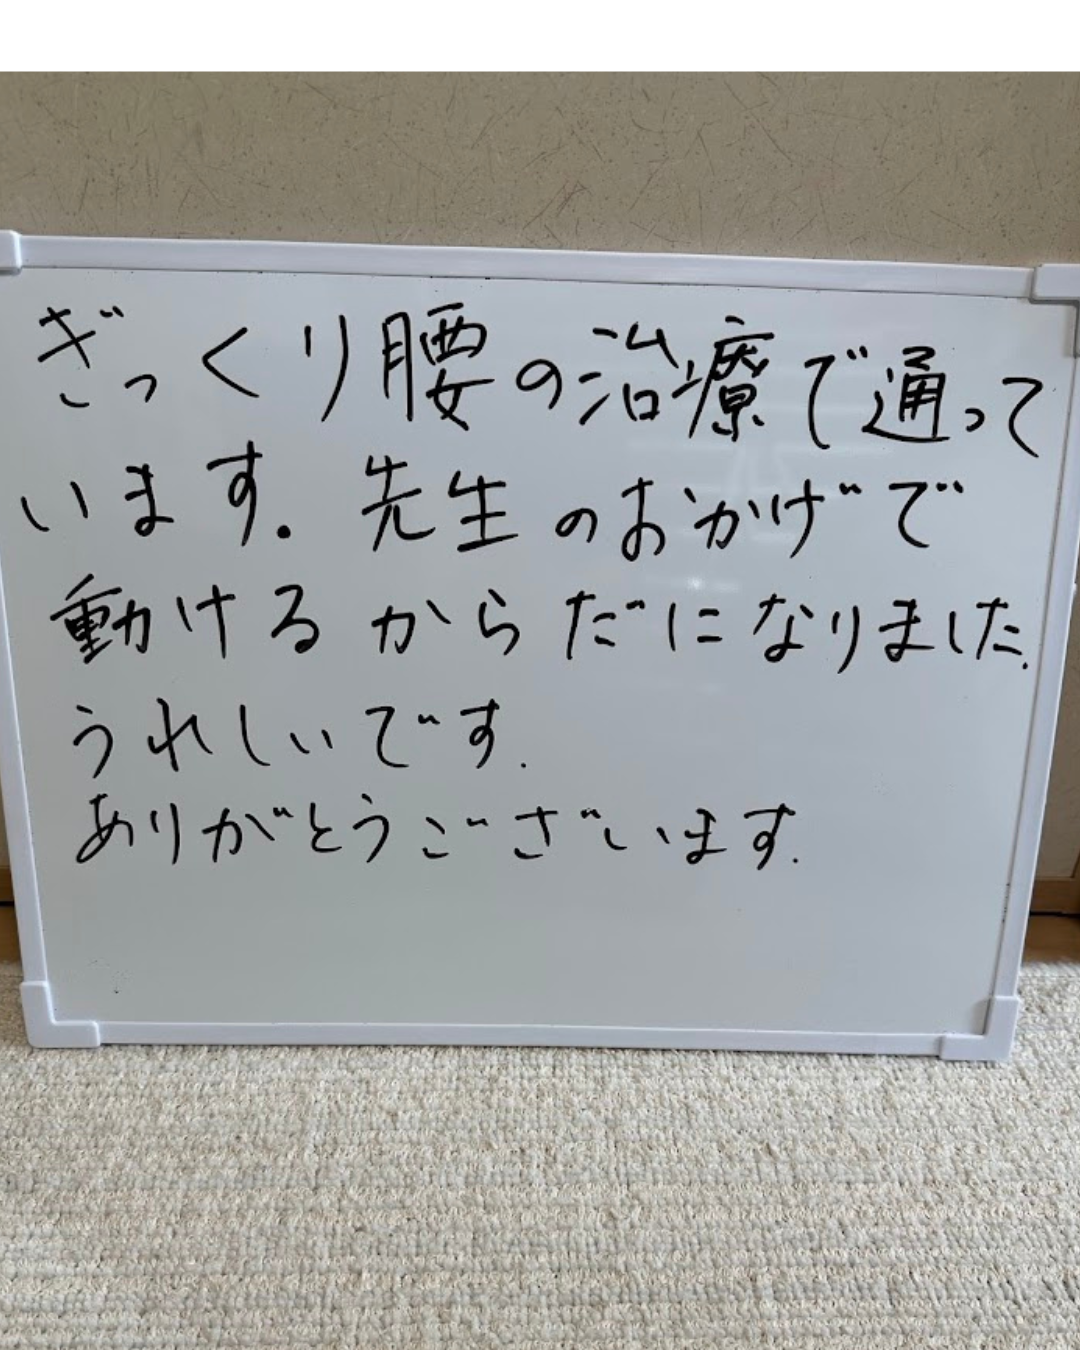 ぎっくり腰の治療で通って
います.先生のおかげで
動けるからだになりました.
うれしいです.
ありがとうございます.